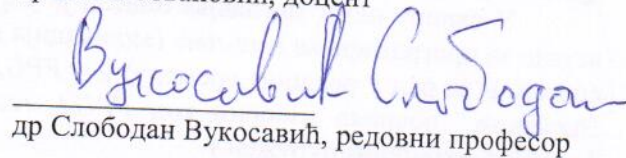 доцент
Вукосавић Слободан
др Слободан Вукосавић, редовни професор